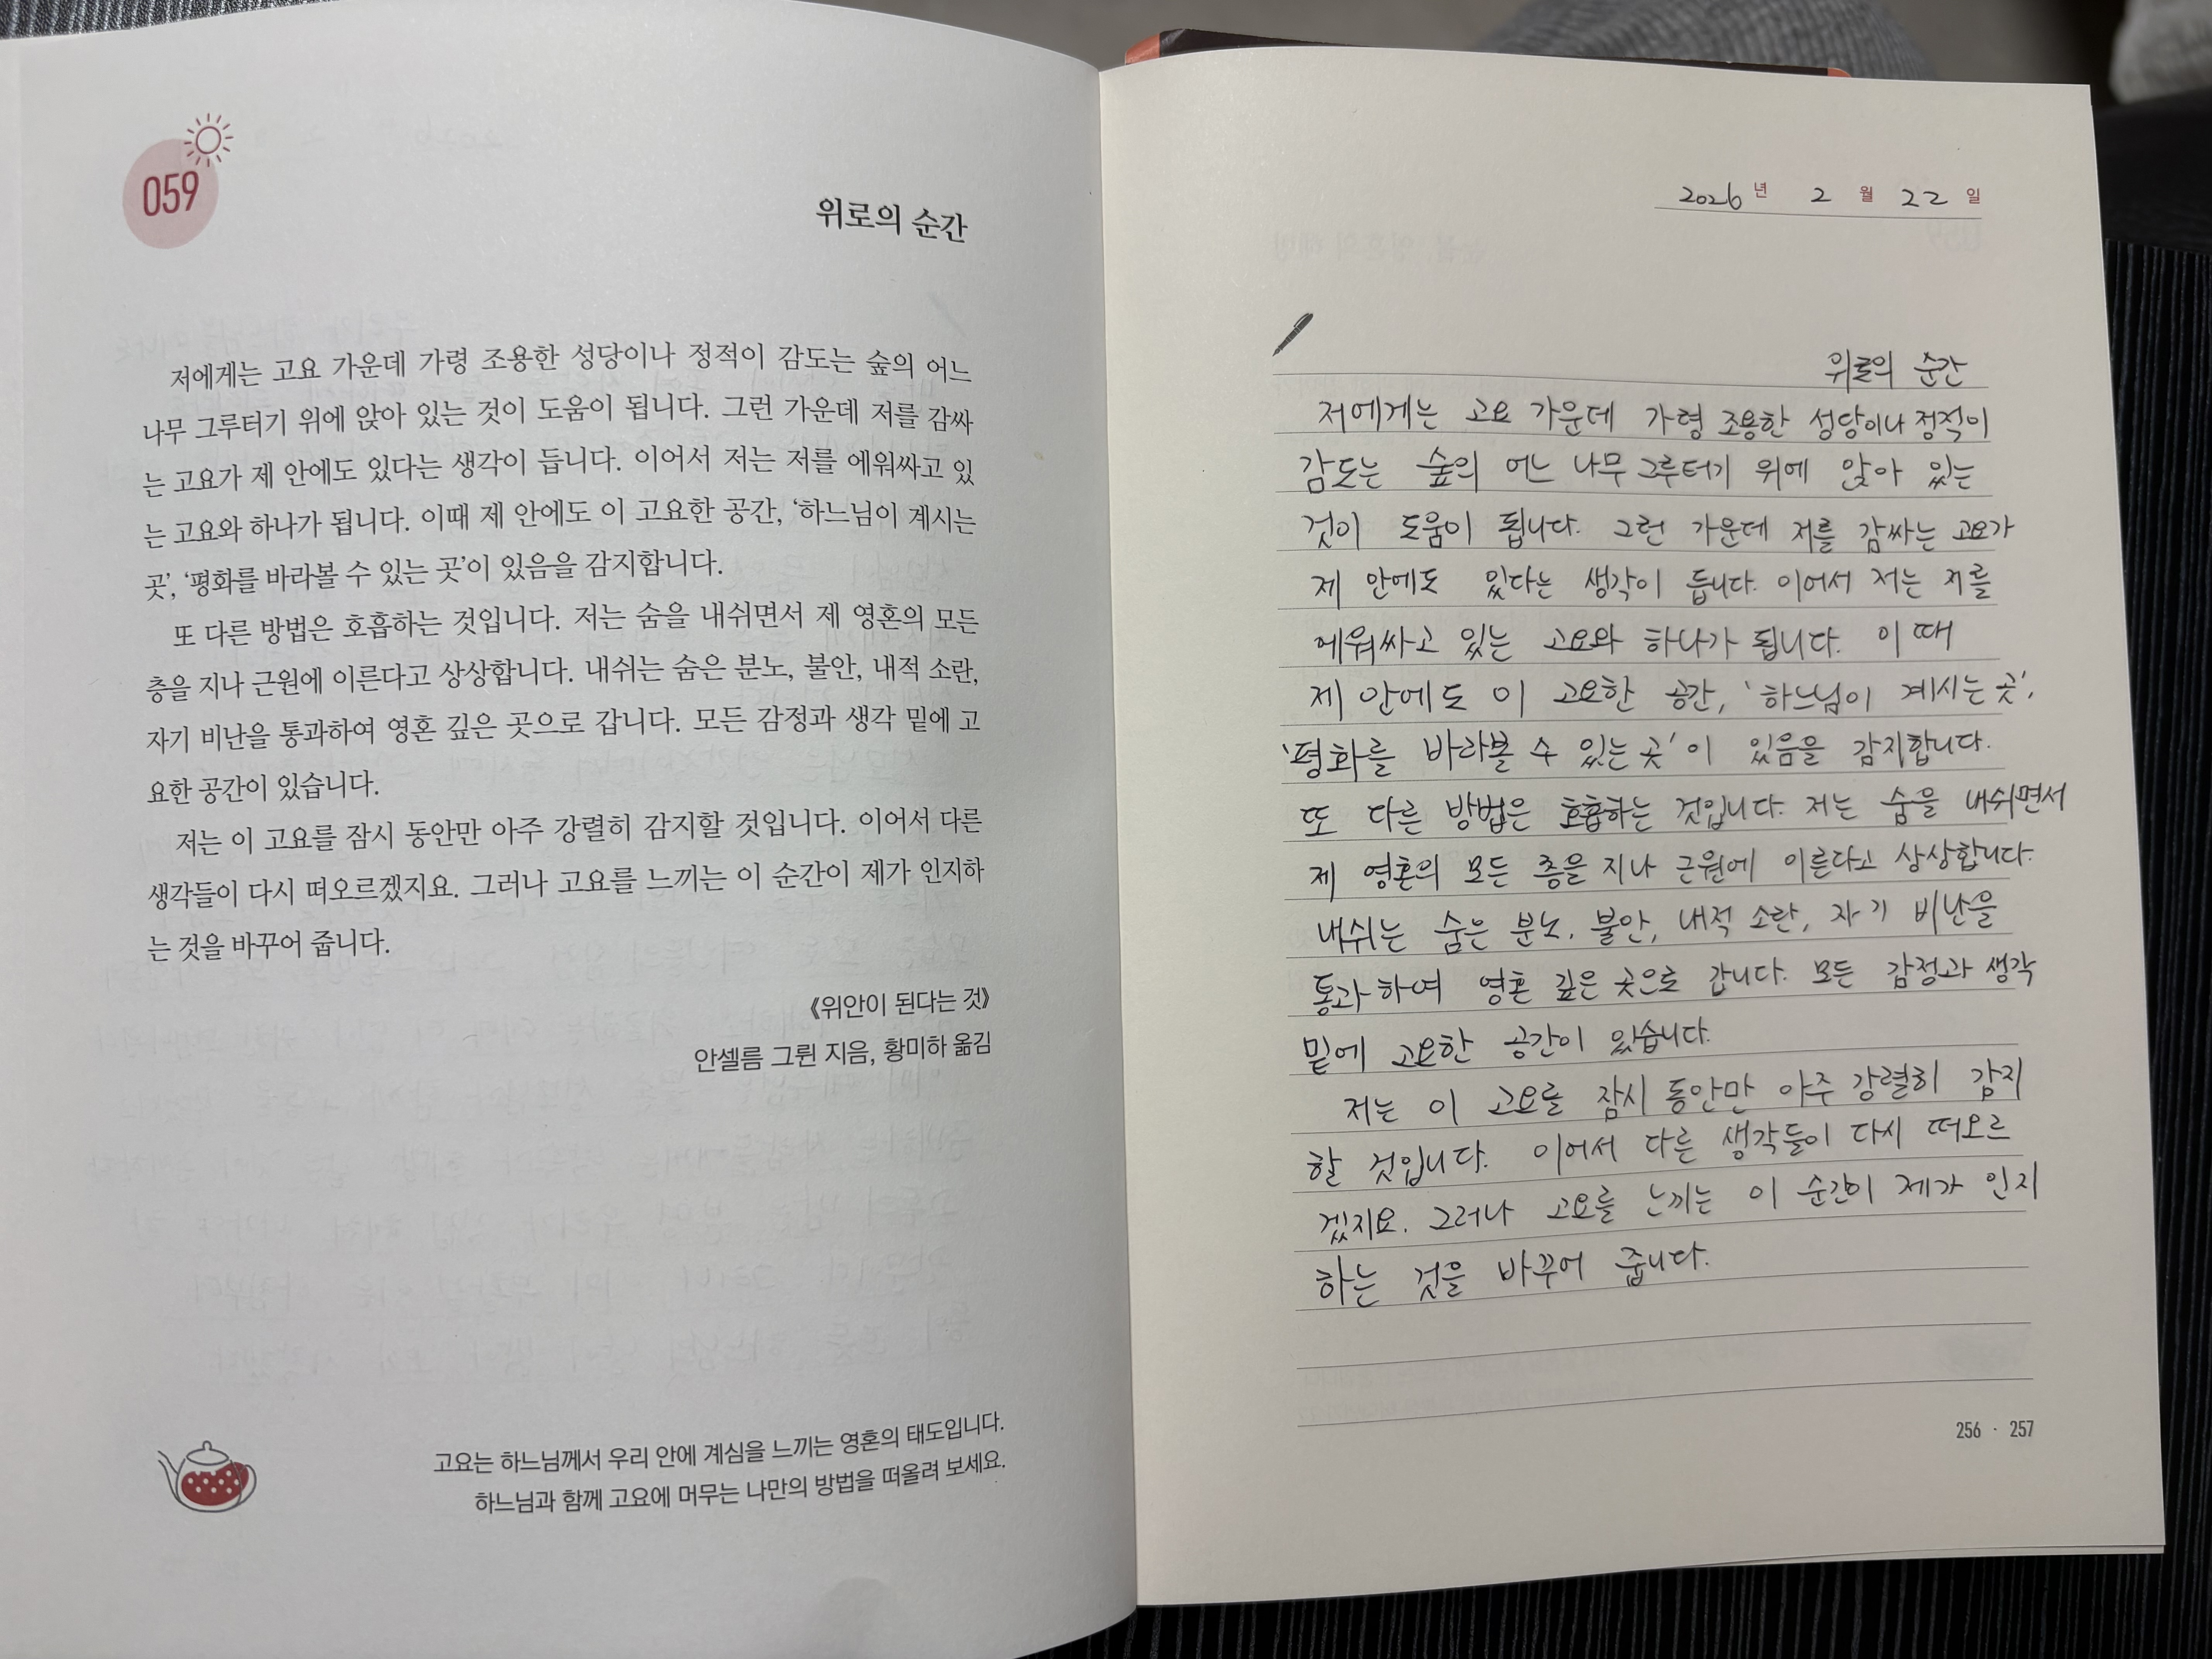 059
위로의 순간
저에게는 고요 가운데 가령 조용한 성당이나 정적이 감도는 숲의 어느
나무 그루터기 위에 앉아 있는 것이 도움이 됩니다. 그런 가운데 저를 감싸
는 고요가 제 안에도 있다는 생각이 듭니다. 이어서 저는 저를 에워싸고 있
는 고요와 하나가 됩니다. 이때 제 안에도 이 고요한 공간, ‘하느님이 계시는
곳’, ‘평화를 바라볼 수 있는 곳’이 있음을 감지합니다.
또 다른 방법은 호흡하는 것입니다. 저는 숨을 내쉬면서 제 영혼의 모든
층을 지나 근원에 이른다고 상상합니다. 내쉬는 숨은 분노, 불안, 내적 소란,
자기 비난을 통과하여 영혼 깊은 곳으로 갑니다. 모든 감정과 생각 밑에 고
요한 공간이 있습니다.
저는 이 고요를 잠시 동안만 아주 강렬히 감지할 것입니다. 이어서 다른
생각들이 다시 떠오르겠지요. 그러나 고요를 느끼는 이 순간이 제가 인지하
는 것을 바꾸어 줍니다.
《위안이 된다는 것》
안셀름 그륀 지음, 황미하 옮김
고요는 하느님께서 우리 안에 계심을 느끼는 영혼의 태도입니다.
하느님과 함께 고요에 머무는 나만의 방법을 떠올려 보세요.
2026 년 2 월 22 일
위로의 순간
저에게는 고요 가운데 가령 조용한 성당이나 정적이
감도는 숲의 어느 나무 그루터기 위에 앉아 있는
것이 도움이 됩니다. 그런 가운데 저를 감싸는 고요가
제 안에도 있다는 생각이 듭니다. 이어서 저는 저를
에워싸고 있는 고요와 하나가 됩니다. 이 때
제 안에도 이 고요한 공간, ‘하느님이 계시는 곳’,
‘평화를 바라볼 수 있는 곳’이 있음을 감지합니다.
또 다른 방법은 호흡하는 것입니다. 저는 숨을 내쉬면서
제 영혼의 모든 층을 지나 근원에 이른다고 상상합니다.
내쉬는 숨은 분노, 불안, 내적 소란, 자기 비난을
통과하여 영혼 깊은 곳으로 갑니다. 모든 감정과 생각
밑에 고요한 공간이 있습니다.
저는 이 고요를 잠시 동안만 아주 강렬히 감지
할 것입니다. 이어서 다른 생각들이 다시 떠오르
겠지요. 그러나 고요를 느끼는 이 순간이 제가 인지
하는 것을 바꾸어 줍니다.
256 · 257